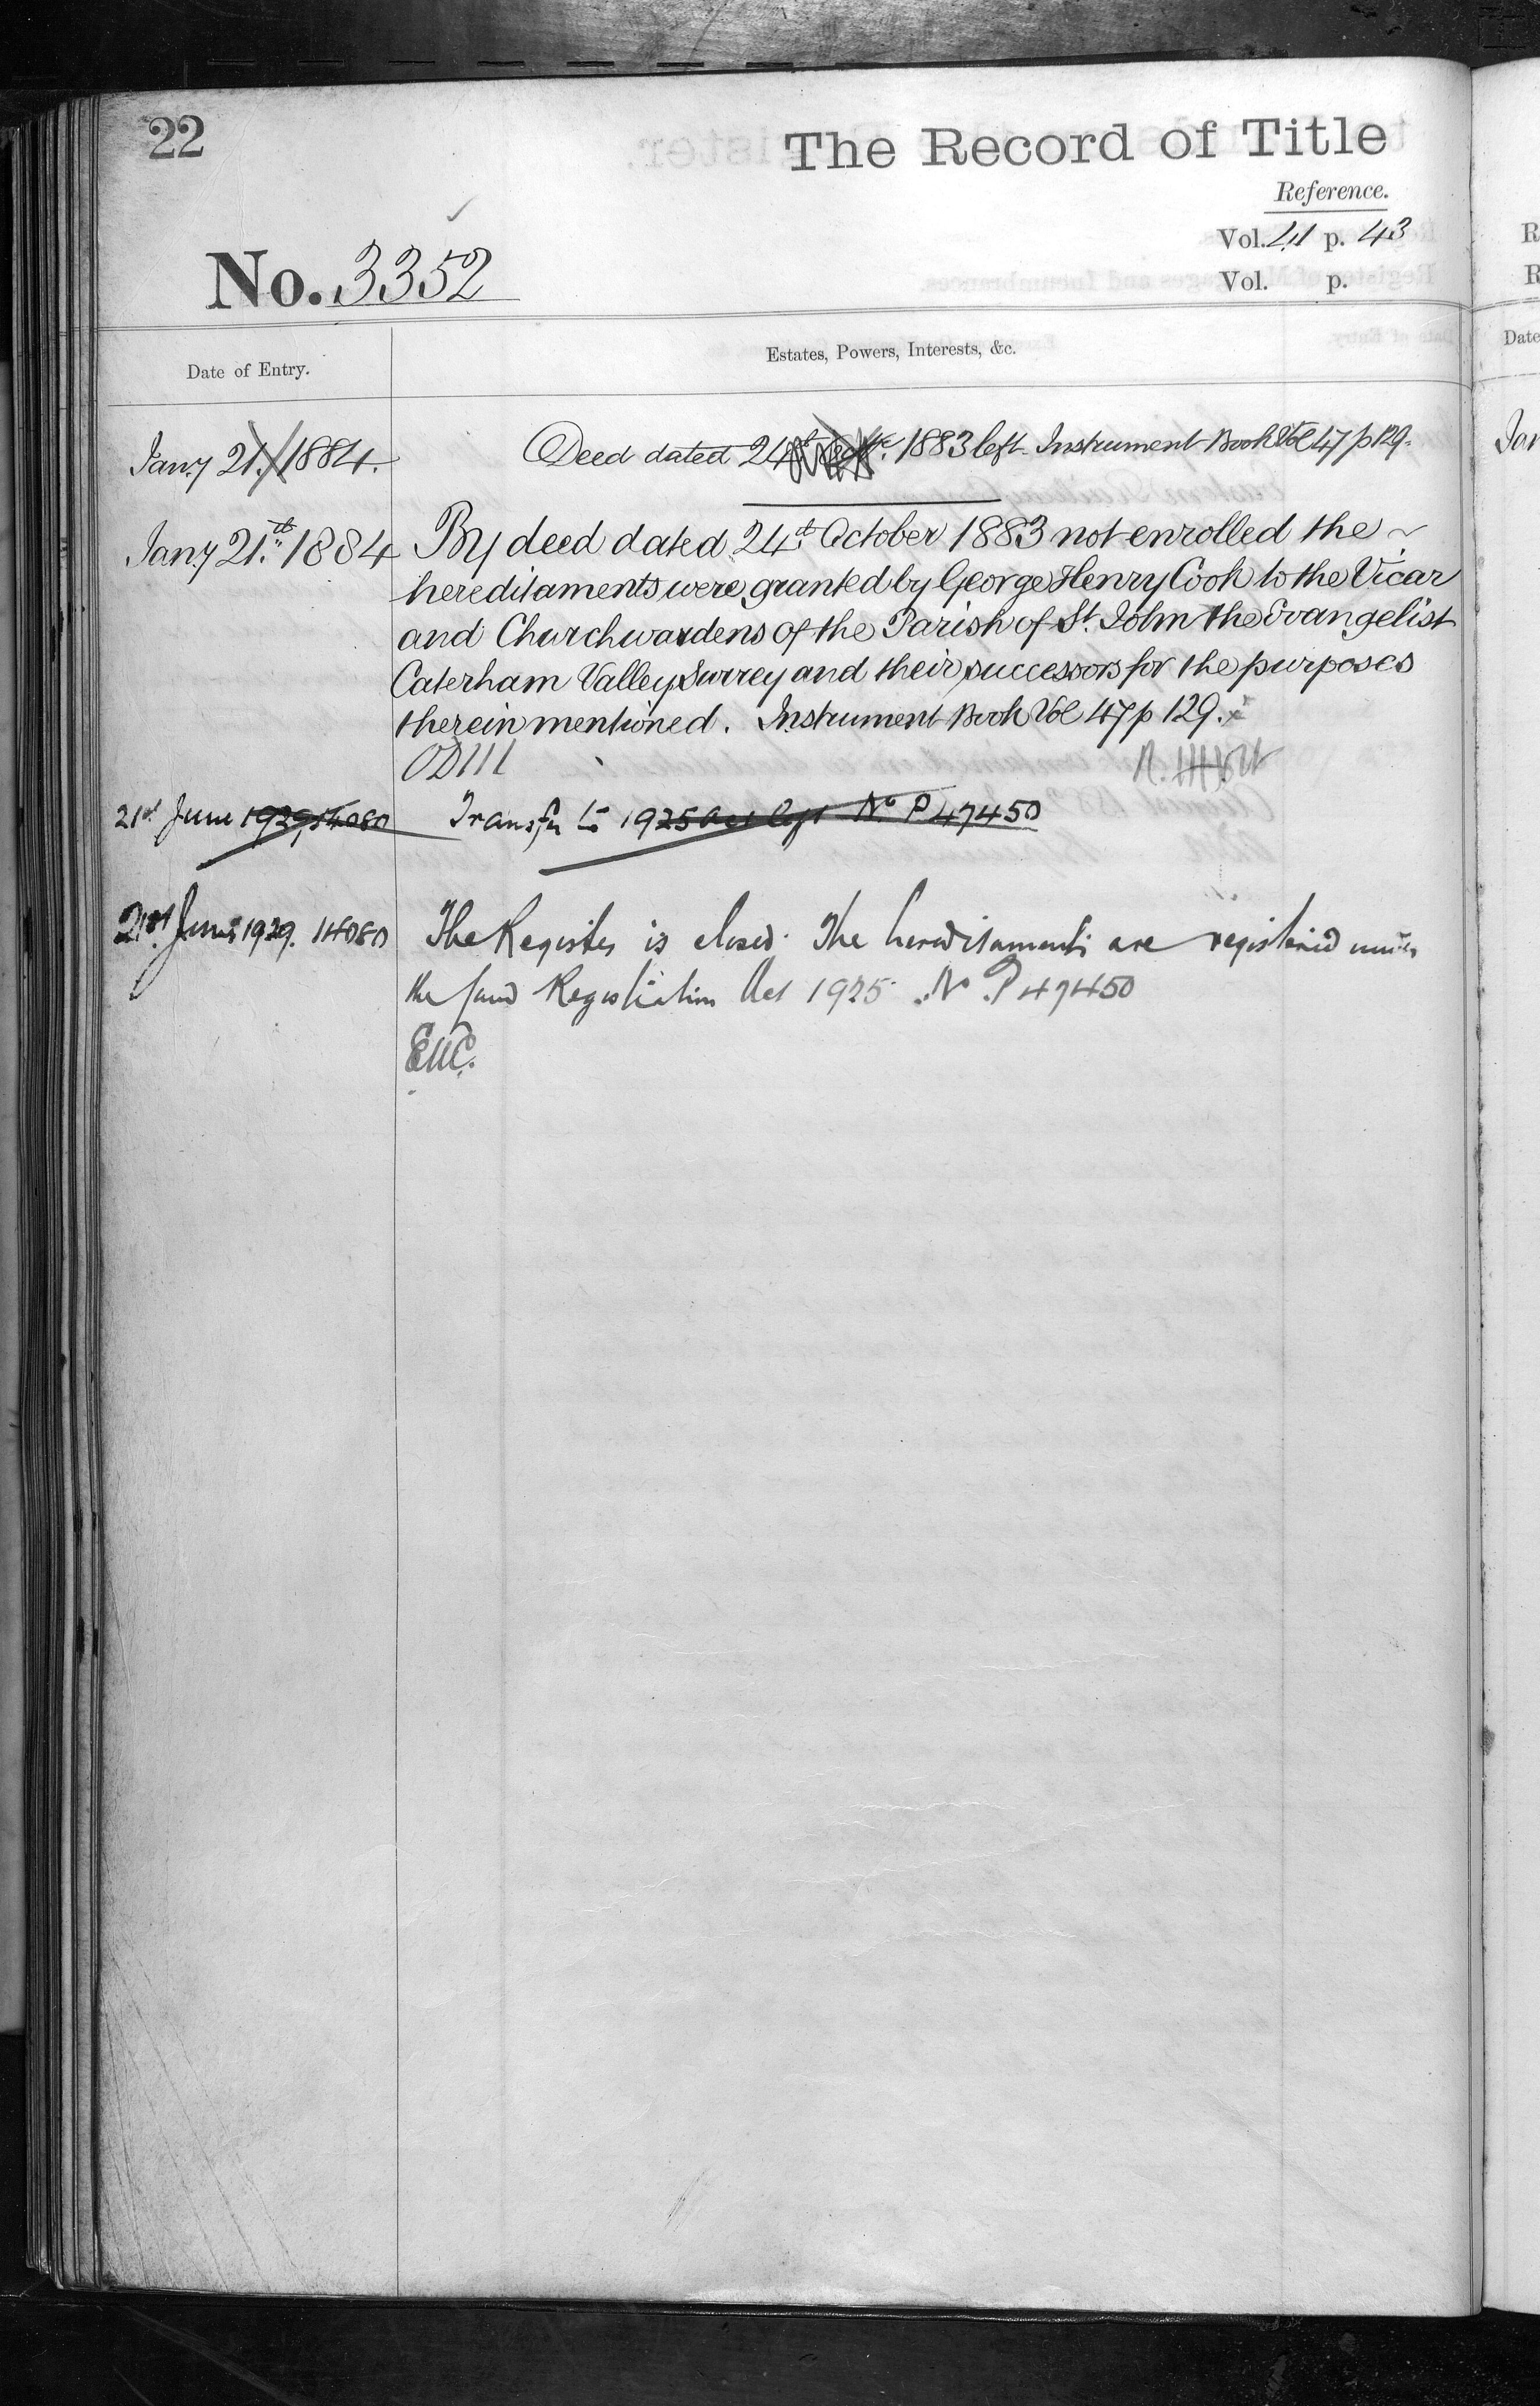 22
The Record of Title
Reference.
Vol. 41 p. 43
No. 3352
Vol. p.
Date of Entry.
Estates, Powers, Interests, &c.
Jany 21. 1884.
Deed dated 24th Octr. 1883 left Instrument Book Vol 47 p 129.
Jany 21st 1884
By deed dated 24th October 1883 not enrolled the ~
hereditaments were granted by George Henry Cook to the Vicar
and Churchwardens of the Parish of St. John the Evangelist
Caterham Valley Surrey and their successors for the purposes
therein mentioned. Instrument Book Vol 47 p 129.
21st June 1929, 14080
Transfer to 1925 Act left No. P 47450
21st June 1929. 14080
The Register is closed. The hereditaments are registered under
the Land Registration Act 1925. No. P 47450
Date
Jan